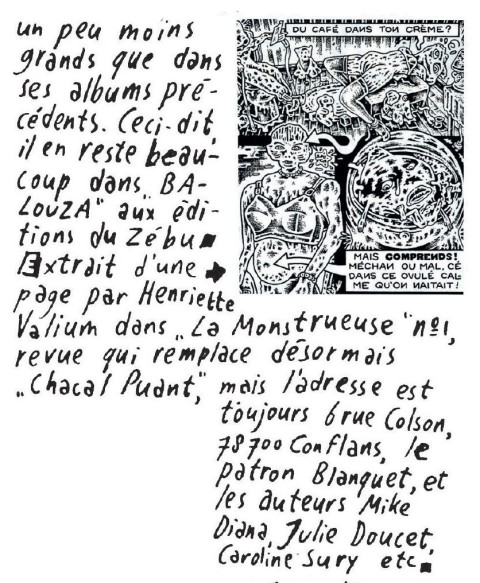 un peu moins
grands que dans
ses albums pré-
cédents. Ceci-dit,
il en reste beau-
coup dans „BA-
LOUZA" aux édi-
tions du Zébu■
Extrait d'une ➔
page par Henriette
Valium dans „La Monstrueuse" nº1,
revue qui remplace désormais
„Chacal Puant", mais l'adresse est
toujours 6 rue Colson,
78700 Conflans, le
patron Blanquet, et
les auteurs Mike
Diana, Julie Doucet,
Caroline Sury etc■
DU CAFÉ DANS TON CRÈME?
MAIS COMPRENDS!
MÉCHAN OU MAL, CÉ
DANS CE OVULÉ CAL-
ME QU'ON NAITAIT!